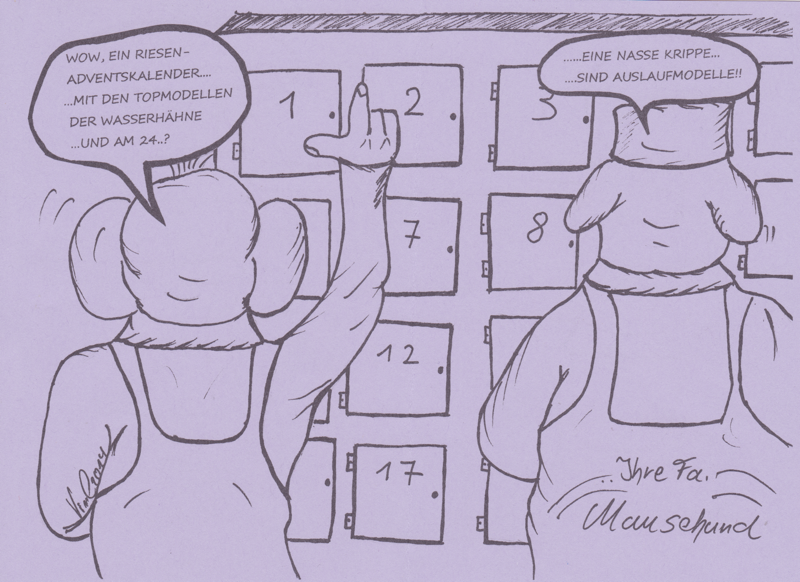 WOW, EIN RIESEN-
ADVENTSKALENDER....
...MIT DEN TOPMODELLEN
DER WASSERHÄHNE
...UND AM 24..?
......EINE NASSE KRIPPE...
....SIND AUSLAUFMODELLE!!
1
2
3
7
8
12
17
..Ihre Fa.
Mausehund